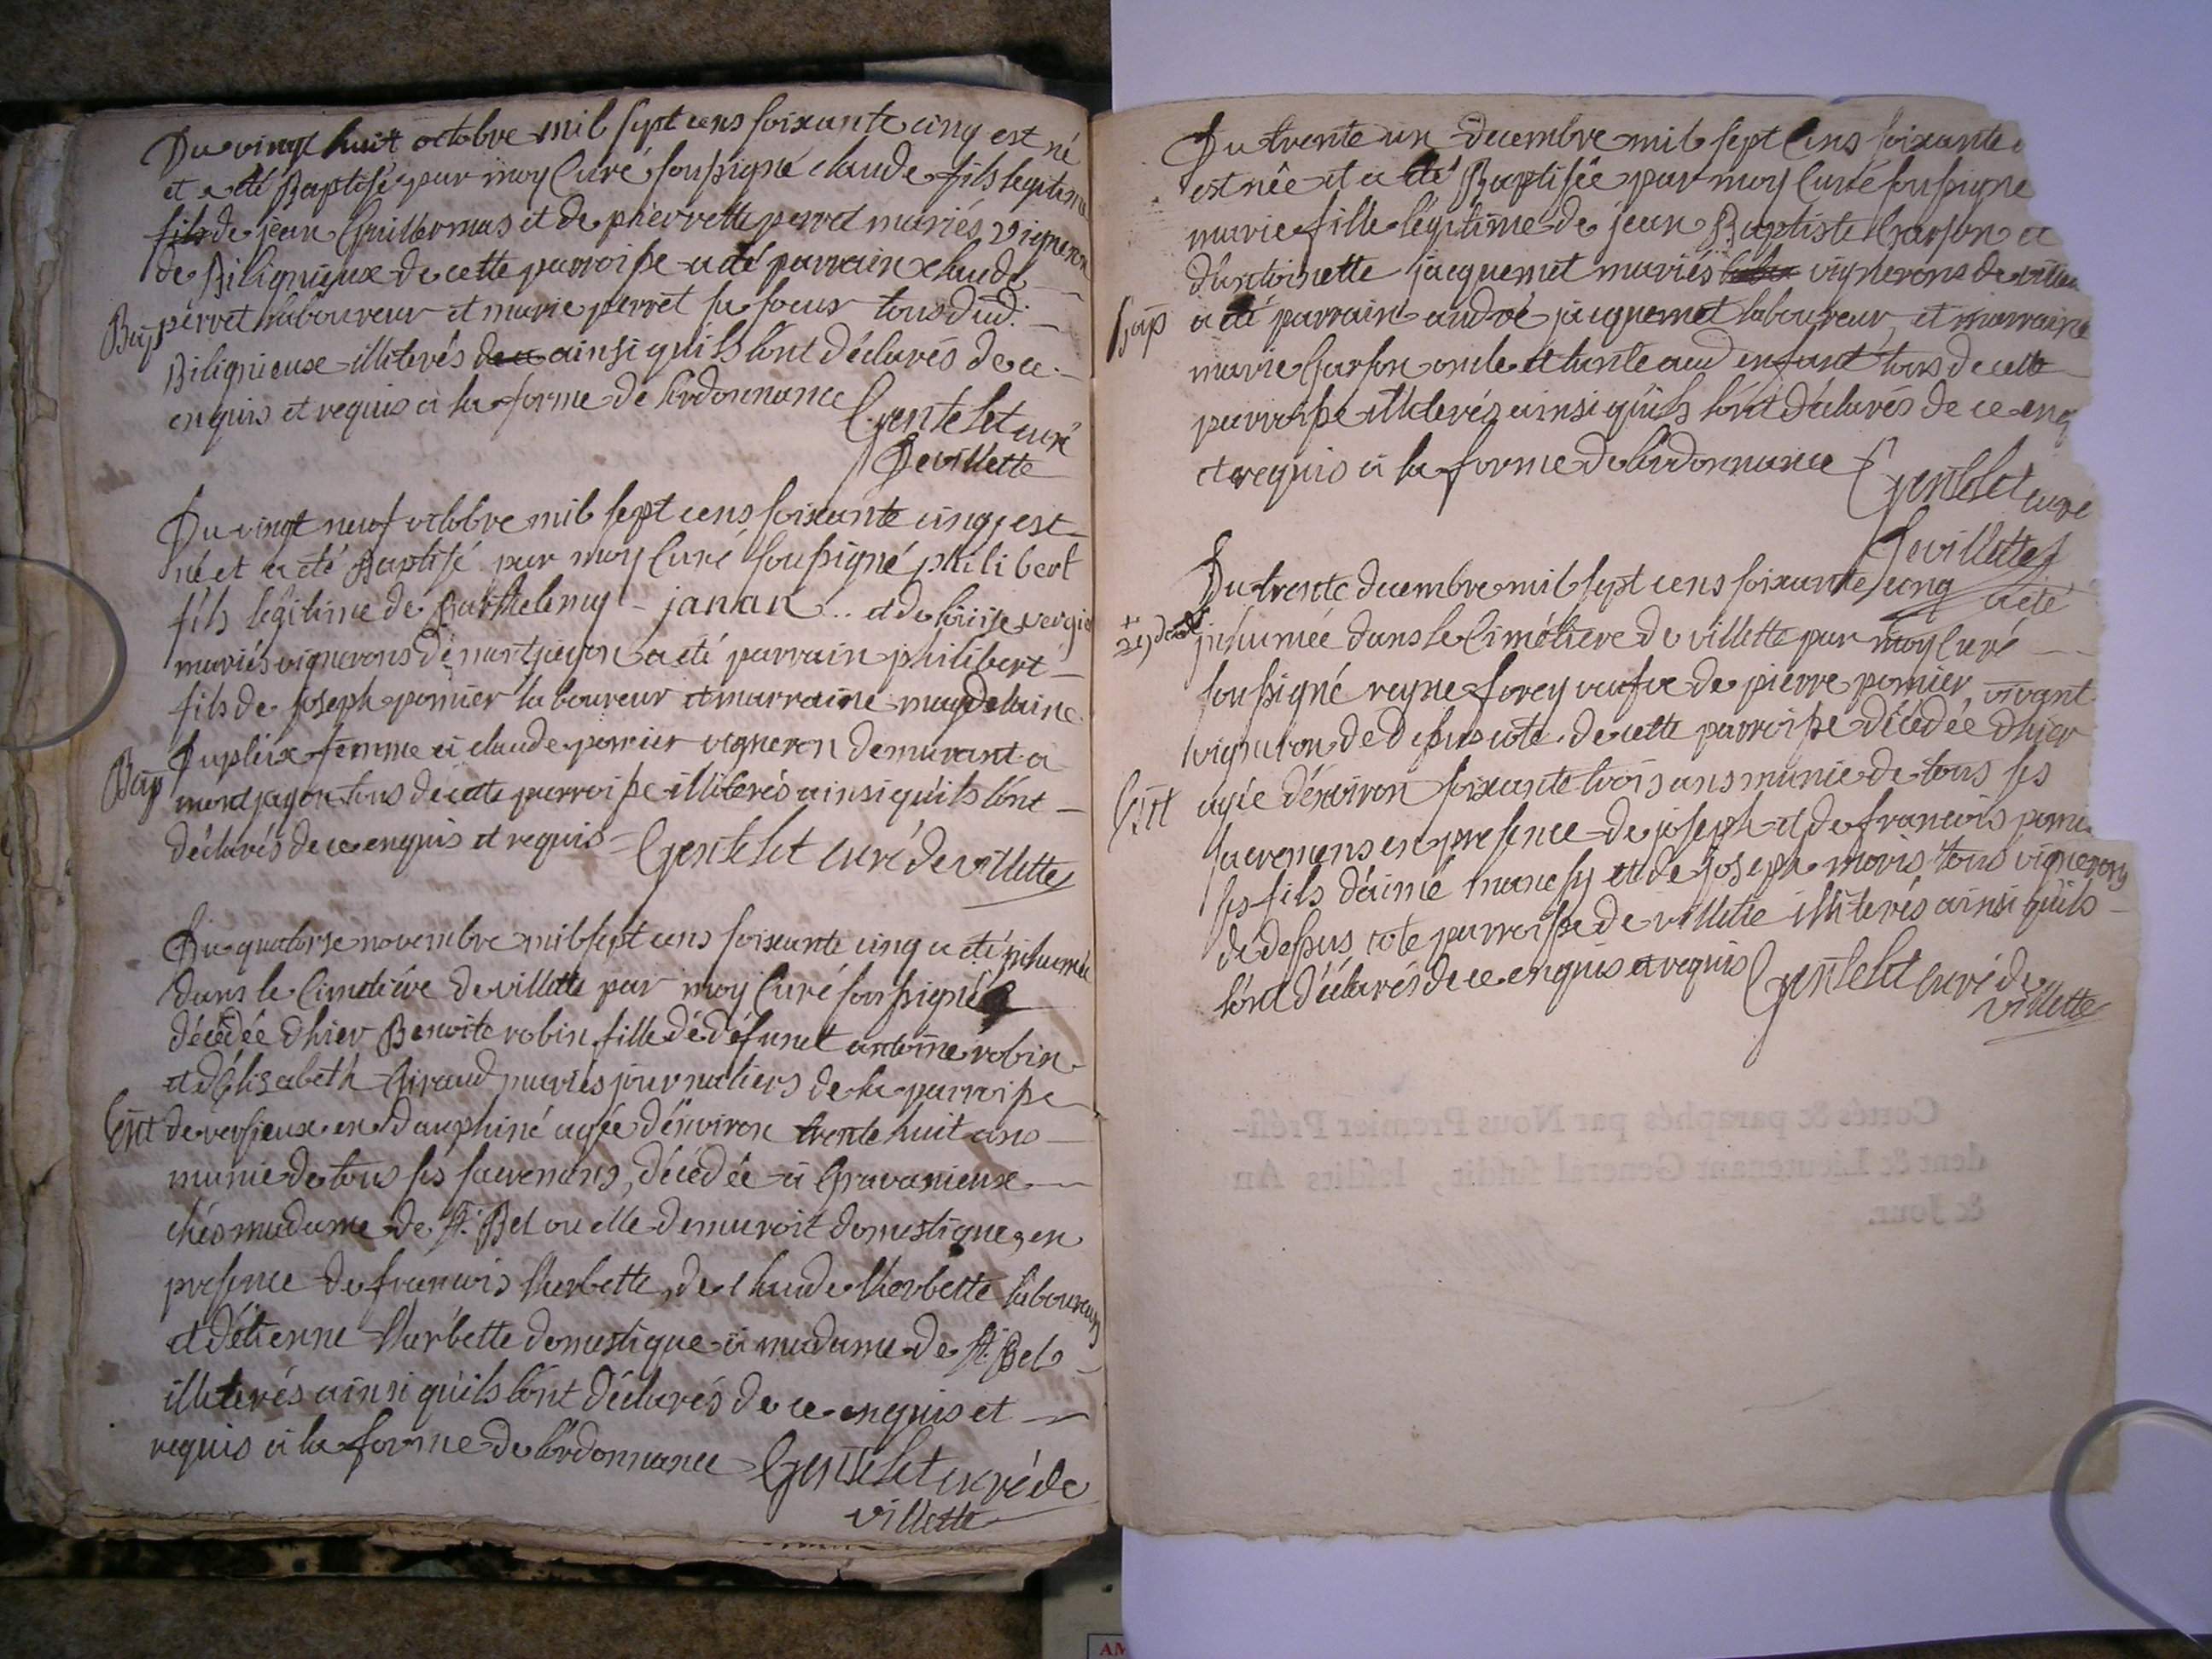 Du vingt huit octobre mil sept cens soixante cinq est né
et a été Baptisé par moy Curé soussigné claude fils legitime
fils de jean Guillermas et de pierrette perret mariés vigneron
de Bilignieux de cette parroisse a été parrain claude
Bap perret laboureur et marie perret sa soeur tous dud:
Bilignieux illiterés de ce ainsi quils l'ont déclarés de ce
enquis et requis a la forme de l'ordonnance Gentelet curé
De villette
Du vingt neuf octobre mil sept cens soixante cinq, est
né et a été Baptisé par moy Curé soussigné philibert
fils legitime de Barthelemy janan .. et de louise
mariés vignerons de montjayon a été parrain philibert
fils de joseph pomier laboureur et marraine magdelaine
Dupleix femme a claude perrier vigneron demurant a
Bap montjayon tous de cette parroisse illiterés ainsi quils l'ont
déclarés de ce enquis et requis Gentelet curé de villette
Du quatorse novembre mil sept cens soixante cinq a été inhumée
dans le Cimetière de villette par moy Curé soussigné
décédée d'hier Benoite robin fille de défunct antoine robin
et d'Elisabeth Giraud mariés journaliers de la parroisse
Ent de versieux en Dauphiné agée d'environ trente huit ans
munie de tous ses sacremens, décédée a Gravanieux
chés madame de St. Bel ou elle demuroit domestique, en
presence de francois Lherbette, de claude Lherbette laboureurs
et d'étienne Lherbette domestique a madame de St. Bel
illiterés ainsi quils l'ont déclarés de ce enquis et
requis a la forme de l'ordonnance Gentelet curé de
villette
Du trente un decembre mil sept Cens soixante
est née et a été Baptisée par moy Curé soussigné
marie fille légitime de jean Baptiste et
d'antoinette jacquemet mariés vignerons de
Bap a été parrain andré jacquemet laboureur, et marraine
marie oncle et tante aud enfant tous de cette
parroisse illiterés ainsi quils l'ont déclarés de ce enq
et requis a la forme de l'ordonnance Gentelet curé
De villette
Du trente decembre mil sept cens soixante cinq a été
inhumée dans le Cimétiere de villette par moy Curé
soussigné reyne forey veufve de pierre pomier, vivant
vigneron de dessus cote de cette parroisse décédée d'hier
Ent agée d'environ soixante trois ans munie de tous ses
sacremens en presence de joseph et de francois pomi
ses fils d'aimé et de joseph tous vignerons
de dessus cote parroisse de villette illiterés ainsi quils
l'ont déclarés de ce enquis et requis Gentelet curé de
villette
Cottés & paraphés par Nous Premier Présि-
dent & Lieutenant General susdit, lesdits An
& Jour.